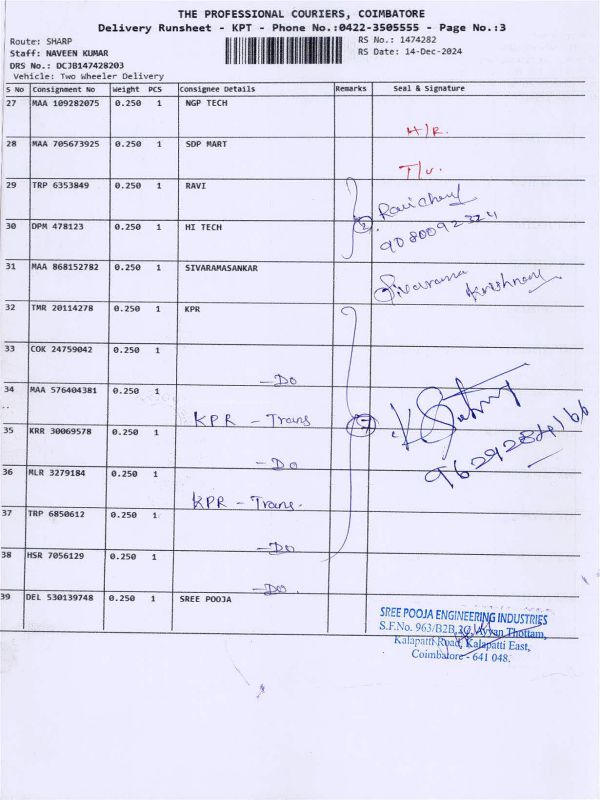 THE PROFESSIONAL COURIERS, COIMBATORE
Delivery Runsheet - KPT - Phone No.:0422-3505555 - Page No.:3
Route: SHARP
RS No.: 1474282
Staff: NAVEEN KUMAR
RS Date: 14-Dec-2024
DRS No.: DCJB147428203
Vehicle: Two Wheeler Delivery
S No Consignment No Weight PCS Consignee Details Remarks Seal & Signature
27 MAA 109282075 0.250 1 NGP TECH
H/R.
28 MAA 705673925 0.250 1 SDP MART
29 TRP 6353849 0.250 1 RAVI
30 DPM 478123 0.250 1 HI TECH
31 MAA 868152782 0.250 1 SIVARAMASANKAR
Sivarama
32 TMR 20114278 0.250 1 KPR
33 COK 24759042 0.250 1
-Do
34 MAA 576404381 0.250 1
KPR - Trans
7
35 KRR 30069578 0.250 1
-Do
36 MLR 3279184 0.250 1
KPR - Trans.
37 TRP 6850612 0.250 1
-Do
38 HSR 7056129 0.250 1
-Do.
39 DEL 530139748 0.250 1 SREE POOJA
SREE POOJA ENGINEERING INDUSTRIES
S.F.No. 963/B2B, Ayyan Thottam,
Kalapatti Road, Kalapatti East,
Coimbatore - 641 048.